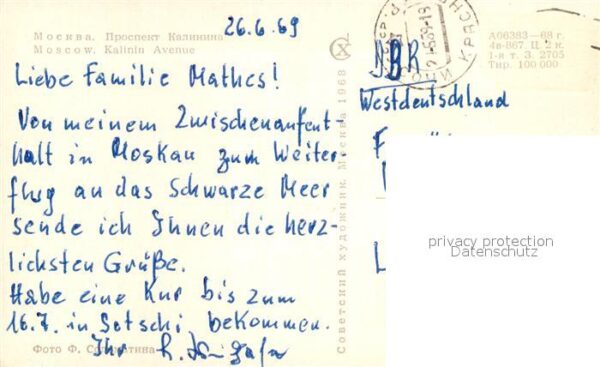 26.6.69
Москва. Проспект Калинина
Moscow. Kalinin Avenue
Liebe Familie Mathes!
Von meinem Zwischenaufent-
halt in Moskau zum Weiter
flug an das Schwarze Meer
sende ich Ihnen die herz-
lichsten Grüße.
Habe eine Kur bis zum
16.7. in Sotschi bekommen.
Ihr
Фото Ф.
Советский художник. Москва 1968
А06383—68 г.
4в-867. Ц. 2 к.
1-я т. З. 2705
Тир. 100 000
DBR
Westdeutschland
privacy protection
Datenschutz